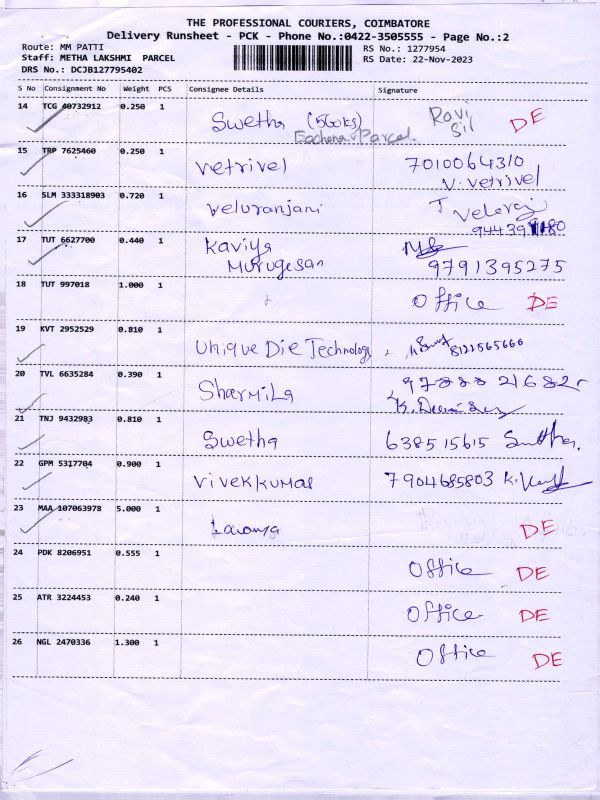 THE PROFESSIONAL COURIERS, COIMBATORE
Delivery Runsheet - PCK - Phone No.:0422-3505555 - Page No.:2
Route: MM PATTI RS No.: 1277954
Staff: METHA LAKSHMI PARCEL RS Date: 22-Nov-2023
DRS No.: DCJB127795402
S No Consignment No Weight PCS Consignee Details Signature
14 TCG 40732912 0.250 1
Swetha Ravi DE
Parcel
15 TRP 7625460 0.250 1
Vetrivel 7010064310
V. Vetrivel
16 SLM 333318903 0.720 1
Veluranjani
17 TUT 6627700 0.440 1
Kaviya
Murugesan 9791395275
18 TUT 997018 1.000 1
Office DE
19 KVT 2952529 0.810 1
Unique Die Technology 8122565660
20 TVL 6635284 0.390 1
Sharmila
21 TNJ 9432983 0.810 1
Swetha 638515615
22 GPM 5317704 0.900 1
Vivekkumar 7904685803
23 MAA 107063978 5.000 1
Lavanya DE
24 PDK 8206951 0.555 1
Office DE
25 ATR 3224453 0.240 1
Office DE
26 NGL 2470336 1.300 1
Office DE